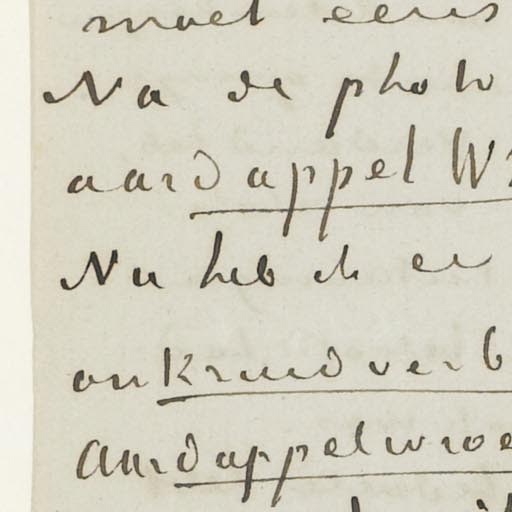 moet eens
Na de photo
aardappel W
Nu heb ik er
onkruidverb
Aardappelwroe